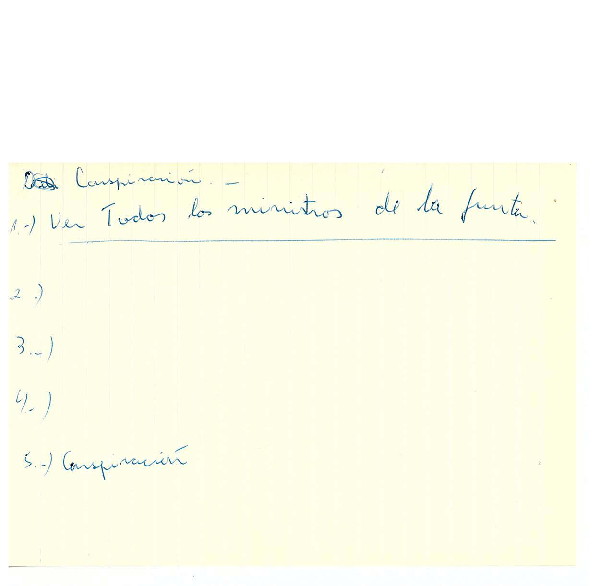 Conspiración. -
1.-) Ver Todos los ministros de la Junta.
2.)
3.-)
4.-)
5.-) Conspiración